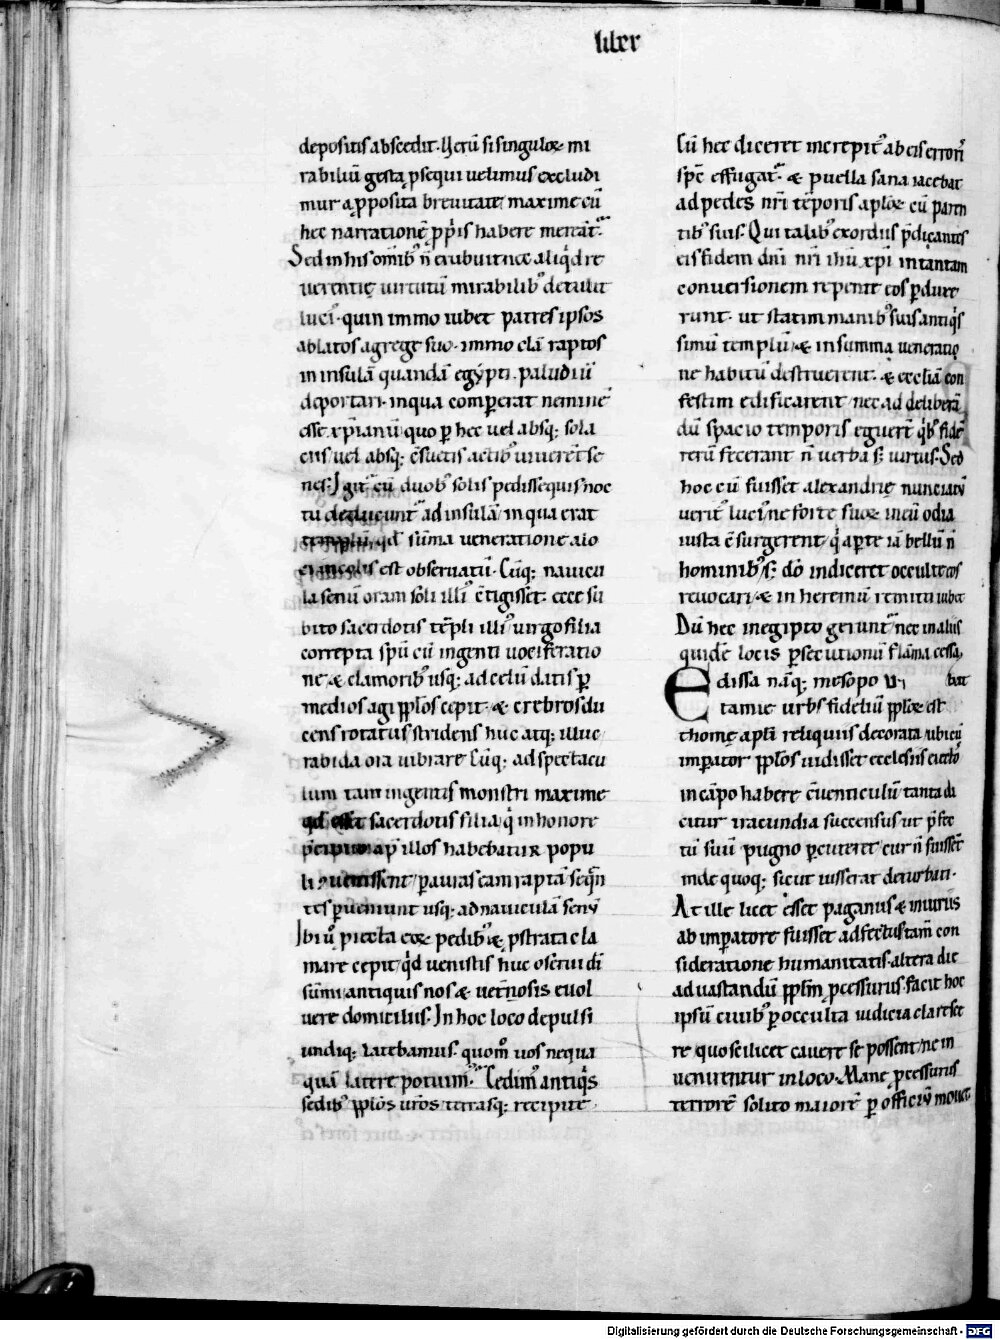 liber
depositis abscedit. Uerū si singuloꝝ mi
rabiliū gesta ꝓsequi uelimus excludi
mur a ꝓposita breuitate maxime cū
hec narrationē ꝓpriis habere mereat᷑.
Sed in his omib; n̄ erubuit nec aliq̇d re
uerentię uirtutū mirabilib; detulit
luci᷑. quin immo iubet patres ipsos
ablatos a grege suo. immo clā raptos
in insulā quandā egypti paludiū
deportari. in qua comperat neminē
esse xpianū quo ꝑ hec uel absq; sola
ciis uel absq; c̄suetis actib; uiuerēt se
nes. Igit᷑ cū duob; solis pedissequis noc
tu deducunt᷑ ad insulā in qua erat
templū qd̄ sūma ueneratione a lo
ci incolis est obseruatū. Cūq; nauicu
la senū oram soli illi᷑ c̄tigisset. ecce su
bito sacerdotis tēpli illi᷑ uirgo filia
correpta spū cū ingenti uociferatio
ne & clamorib; usq; ad celū datis ꝑ
medios agi ppl̄os cepit. & crebros du
cens rotatus stridens huc atq; illuc
rabida ora uibrare. Cūq; ad spectacu
lum tam ingentis monstri maxime
qd̄ esset sacerdotis filia q̇ in honore
p̄cipuo ap̄ illos habebatur popu
li uenissent ꝑ auras eam raptā seq̄n
tes ꝑueniunt usq; ad nauiculā senū
Ibi ū piecta eoꝝ pedib; & ꝓstrata cla
mare cepit. q̇d uenistis huc o serui dī
sūmi antiquis nos & uet᷑nosis euol
uere domiciliis. In hoc loco depulsi
undiq; latebamus. quom̄ uos nequa
quā latere potuim᷑. Cedim᷑ antiq̇s
sedib; ppl̄os uros terrasq; recipite.
Cū hec diceret increpit᷑ ab eis erroris
spc̄ effugat᷑. & puella sana iacebat
ad pedes nr̄i tēporis aploꝝ cū paren
tib; suis. Qui talib; exordiis p̄dicantes
eis fidem dn̄i nr̄i ihū xpi in tantam
conuersionem repente eos ꝑduxe
runt. ut statim manib; suis antiq̇s
simū templū & in summa ueneratio
ne habitū destruerent. & eccliā con
festim edificarent nec ad deliberā
dū spacio temporis eguerē q̇b; fidē
rerū fecerant n̄ uerba s; uirtus. Sed
hoc cū fuisset alexandrię nunciatū
uerit᷑ luci᷑ ne forte suoꝝ in eū odia
iusta c̄surgerent q̇ aꝑte iā bellū n̄
hominib; s; dō indiceret occulte eos
reuocari & in heremū remitti iubet
Dū hec in egipto gerunt᷑ nec in aliis
quidē locis ꝑsecutionū flāma cessa
bat
Edissa nāq; mesopo
tamie urbs fidelium ppl̄oꝝ est
thomę apli reliquiis decorata. ubi cū
imperator ppl̄os uidisset ecclesiis eiectos
in cāpo habere c̄uenticulū tanta di
citur iracundia succensus ut p̄fec
tū suū pugno ꝑcuteret cur n̄ fuissēt
inde quoq; sicut iusserat deturbati.
At ille licet esset paganus & iniuriis
ab imperatore fuisset adfectus tam̄ con
sideratione humanitatis. altera die
ad uastandū pplm̄ ꝓcessurus. facit hoc
ipsū ciuib; ꝑ occulta iudicia claresce
re quo scilicet cauere se possent ne in
uenirentur in loco. Mane ꝓcessurus
terrorē solito maiorē ꝑ officiū mouet